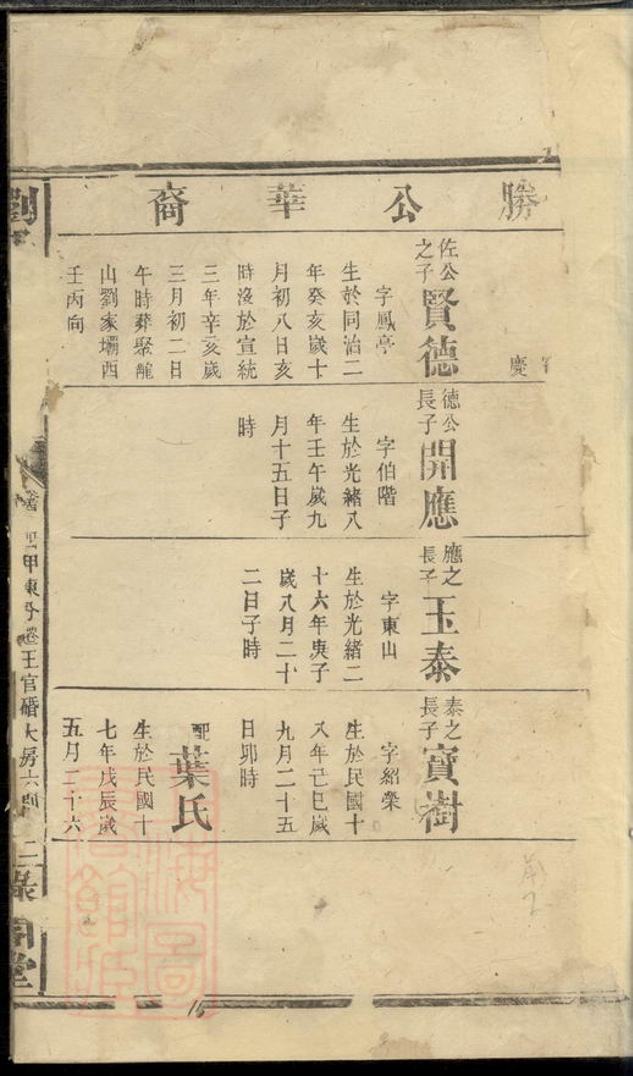 勝公華裔
慶
佐公
之子
賢德
字鳳亭
生於同治二
年癸亥歲十
月初八日亥
時沒於宣統
三年辛亥歲
三月初二日
午時葬聚龍
山劉家壩西
壬丙向
德公
長子
開應
字伯階
生於光緒八
年壬午歲九
月十五日子
時
應之
長子
玉泰
字東山
生於光緒二
十六年庚子
歲八月二十
二日子時
泰之
長子
寶樹
字紹榮
生於民國十
八年己巳歲
九月二十五
日卯時
配
葉氏
生於民國十
七年戊辰歲
五月二十六
劉
甲東分卷王官硚大房六劉
二
堂
16